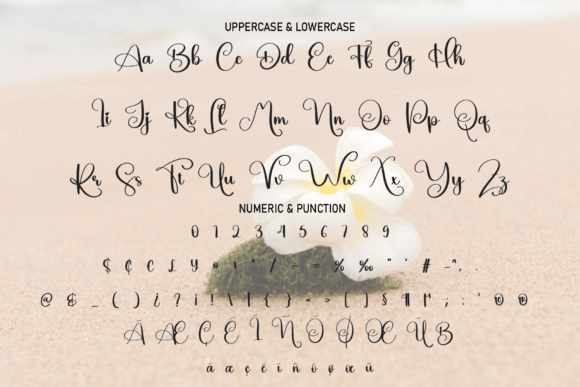 UPPERCASE & LOWERCASE
Aa Bb Cc Dd Ee Ff Gg Hh
Ii Jj Kk Ll Mm Nn Oo Pp Qq
Rr Ss Tt Uu Vv Ww Xx Yy Zz
NUMERIC & PUNCTION
0 1 2 3 4 5 6 7 8 9
$ ₵ € £ ¥ ¤ ' " / ÷ = % ‰ " ' # - ^ , :
@ & _ ( ) ¿ ? ¡ ! \ | { } < > [ ] § ¶ ; : '
Ã Æ Ç É Î Ñ Ö Ø Œ Ú ß
á æ ç é í ñ ô ø œ ü